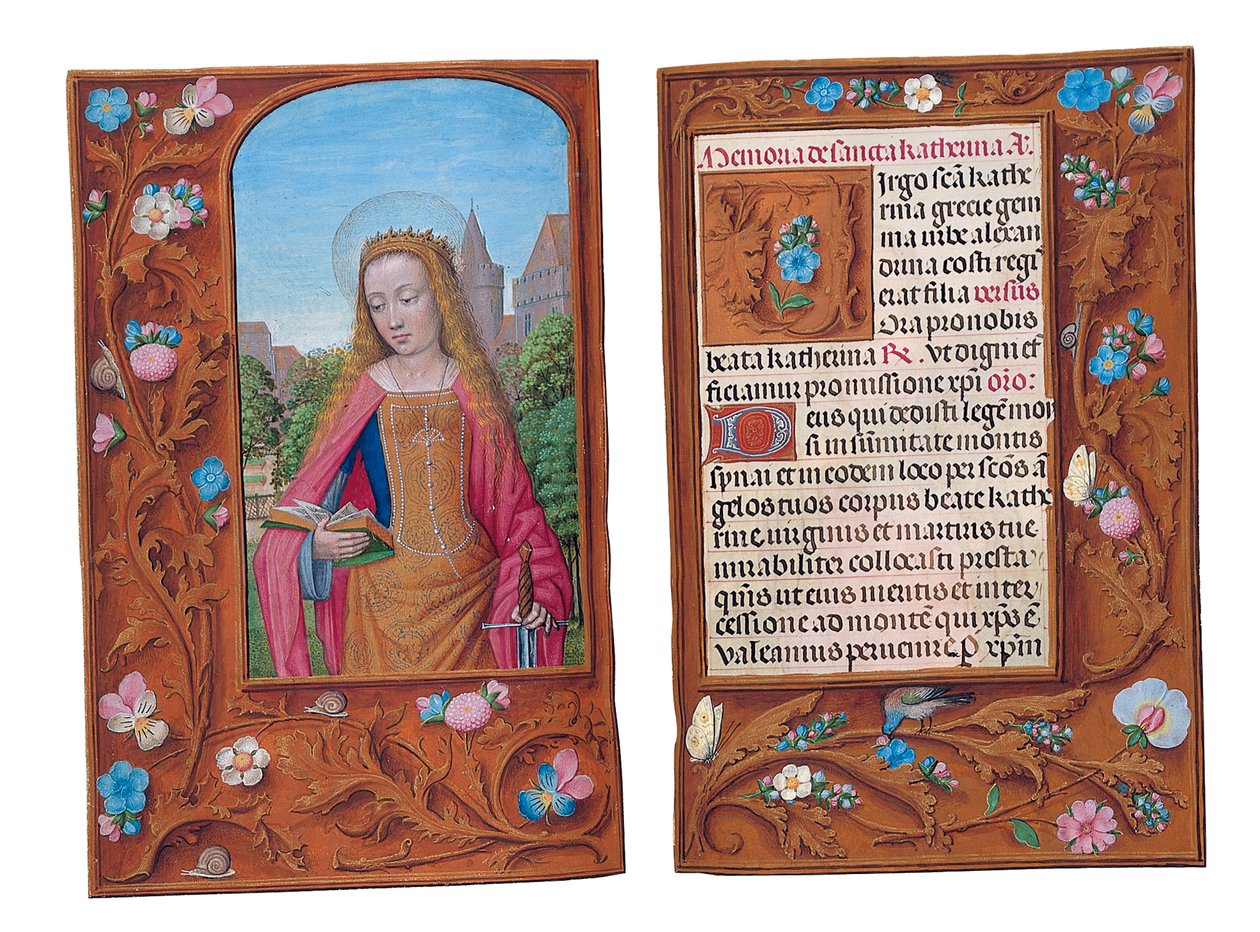 Memoria de sancta katherina A͞.
Virgo scā kathe
rina grecie gem
ma urbe alexan
drina costi regꝭ
erat filia versus
Ora pro nobis
beata katherina ℞. vt digni ef
ficiamur promissione xp̄i or̄o:
Deus qui dedisti legē moy
si in sūmitate montis
synai et in eodem loco per scōs ā
gelos tuos corpus beate kathe
rine virginis et martiris tue
mirabiliter collocasti presta
qm̄s ut eius meritis et inter
cessione ad montē qui xp̄s ē
valeamus peruenire P xp̄m